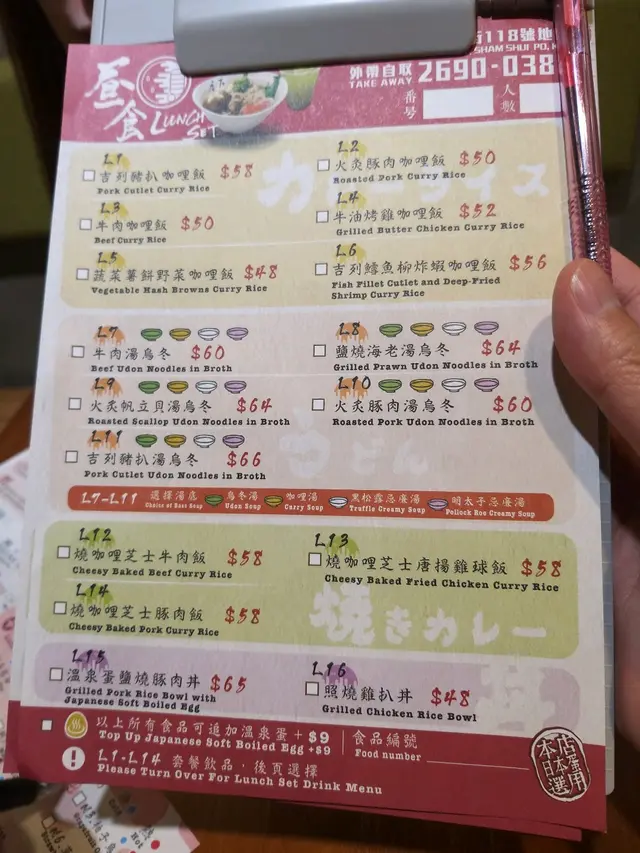 昼食
LUNCH SET
118號地
SHAM SHUI PO,
外帶自取 2690-038
TAKE AWAY
番号
人数
カ
イス
L1
吉列豬扒咖哩飯 $58
Pork Cutlet Curry Rice
L2
火炙豚肉咖哩飯 $50
Roasted Pork Curry Rice
L3
牛肉咖哩飯 $50
Beef Curry Rice
L4
牛油烤雞咖哩飯 $52
Grilled Butter Chicken Curry Rice
L5
蔬菜薯餅野菜咖哩飯 $48
Vegetable Hash Browns Curry Rice
L6
吉列鱈魚柳炸蝦咖哩飯 $56
Fish Fillet Cutlet and Deep-Fried
Shrimp Curry Rice
L7
牛肉湯烏冬 $60
Beef Udon Noodles in Broth
L8
鹽燒海老湯烏冬 $64
Grilled Prawn Udon Noodles in Broth
L9
火炙帆立貝湯烏冬 $64
Roasted Scallop Udon Noodles in Broth
L10
火炙豚肉湯烏冬 $60
Roasted Pork Udon Noodles in Broth
L11
吉列豬扒湯烏冬 $66
Pork Cutlet Udon Noodles in Broth
うどん
L7-L11 選擇湯底 烏冬湯 咖哩湯 黑松露忌廉湯 明太子忌廉湯
Choice of Base Soup Udon Soup Curry Soup Truffle Creamy Soup Pollock Roe Creamy Soup
L12
燒咖哩芝士牛肉飯 $58
Cheesy Baked Beef Curry Rice
L13
燒咖哩芝士唐揚雞球飯 $58
Cheesy Baked Fried Chicken Curry Rice
L14
燒咖哩芝士豚肉飯 $58
Cheesy Baked Pork Curry Rice
焼きカレー
L15
溫泉蛋鹽燒豚肉丼 $65
Grilled Pork Rice Bowl with
Japanese Soft Boiled Egg
L16
照燒雞扒丼 $48
Grilled Chicken Rice Bowl
以上所有食品可追加溫泉蛋+$9
Top Up Japanese Soft Boiled Egg +$9
食品編號
Food number
L1-L14 套餐飲品，後頁選擇
Please Turn Over For Lunch Set Drink Menu
本店
日本蛋
選用